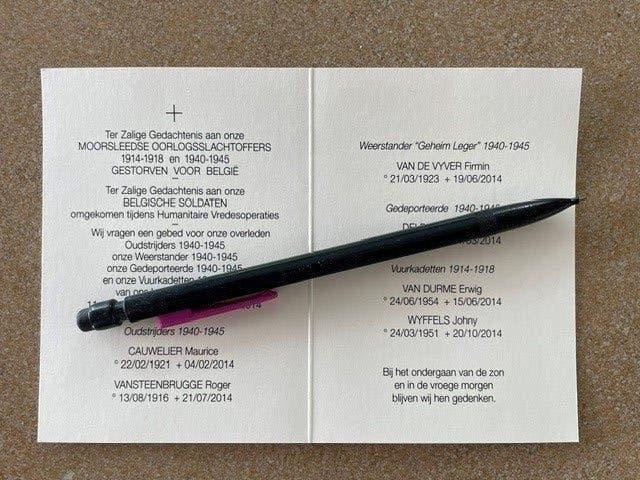 Ter Zalige Gedachtenis aan onze
MOORSLEEDSE OORLOGSSLACHTOFFERS
1914-1918 en 1940-1945
GESTORVEN VOOR BELGIË
Ter Zalige Gedachtenis aan onze
BELGISCHE SOLDATEN
omgekomen tijdens Humanitaire Vredesoperaties
Wij vragen een gebed voor onze overleden
Oudstrijders 1940-1945
onze Weerstander 1940-1945
onze Gedeporteerde 1940-1945
en onze Vuurkadetten
van
Oudstrijders 1940-1945
CAUWELIER Maurice
° 22/02/1921 + 04/02/2014
VANSTEENBRUGGE Roger
° 13/08/1916 + 21/07/2014
Weerstander "Geheim Leger" 1940-1945
VAN DE VYVER Firmin
° 21/03/1923 + 19/06/2014
Gedeporteerde
Vuurkadetten 1914-1918
VAN DURME Erwig
° 24/06/1954 + 15/06/2014
WYFFELS Johny
° 24/03/1951 + 20/10/2014
Bij het ondergaan van de zon
en in de vroege morgen
blijven wij hen gedenken.